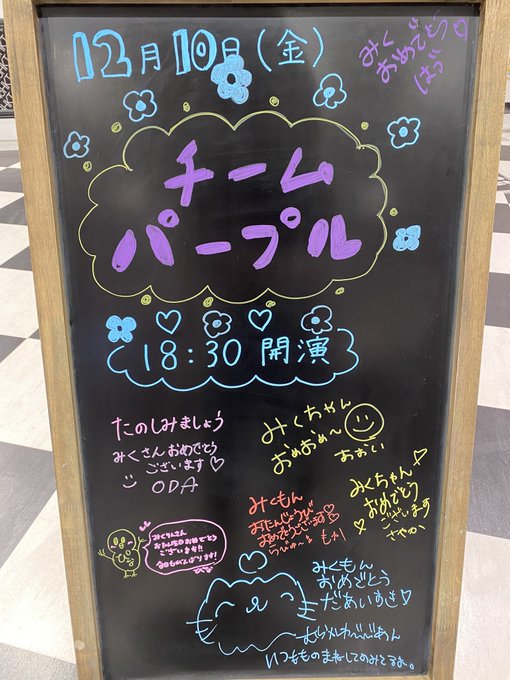 12月10日(金)
みく
おめでとう♡
チーム
パープル
18:30 開演
たのしみましょう
みくさん おめでとう
ございます♡
ODA
みくちゃん
おめおめ〜
あおい
みくもん
おたんじょうび
おめでとうございます♡
もか
みくちゃん
おめでとう
ございます
さやか
みくりんさん
お誕生日おめでとう
ございます!!
今日もがんばります!
みくもん
おめでとう
だあいすき♡